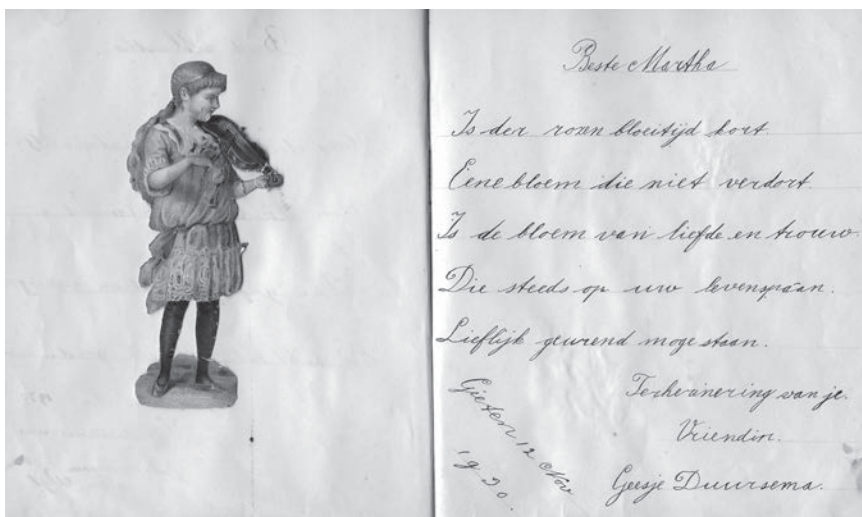 Beste Martha
Is der rozen bloeitijd kort.
Eene bloem die niet verdort.
Is de bloem van liefde en trouw.
Die steeds op uw levenspaan.
Lieflijk geurend moge staan.
Terherinering van je.
Vriendin.
Geesje Duursema.
Gieten 12 Nov
1920.